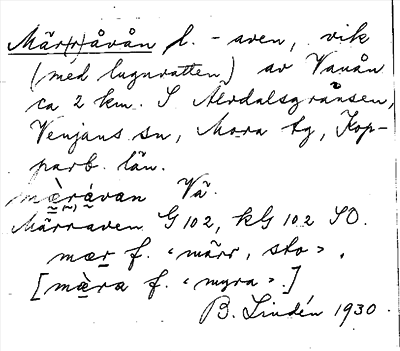 Mär(r)åvån f. – aven, vik
(med lugnvatten) av Vanån
ca 2 km. S Älvdalsgränsen,
Venjans sn, Mora tg, Kop-
parb. län.
mæ̀rávan Vä.
Märraven G 102, kG 102 SO.
mær f. ‹märr, sto›.
[mæ̀ra f. ‹myra›.]
B. Lindén 1930.